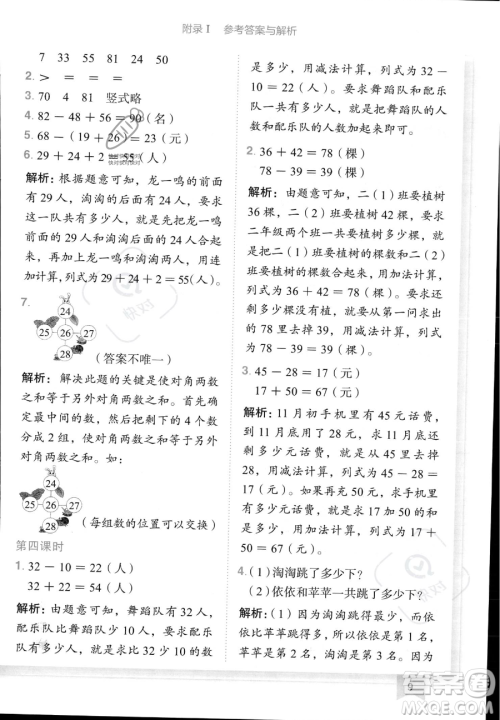 附录Ⅰ 参考答案与解析
7 33 55 15 24 50
2. > = <
3. 70 4 81 竖式略
4. 82－48＋56＝90（名）
5. 68－（19＋26）＝23（元）
6. 29＋24＋2＝55（人）
解析：根据题意可知，龙一鸣的前面
有 29 人，淘淘的后面有 24 人，要求
这一队共有多少人，就是要把龙一鸣
前面的 29 人与淘淘后面的 24 人合起
来，再加上龙一鸣和淘淘两人，用连
加计算，列式为 29＋24＋2＝55（人）。
7.
24
25 26 27
28
（答案不唯一）
解析：解决此题的关键是使对角两数
之和等于另外对角两数之和。首先确
定最中间的数，然后把剩下的四个数
分成 2 组，使对角两数之和等于另外
对角两数之和。如：
24
25 26 27
28
（每组数的位置可以交换）
第四课时
1. 32－10＝22（人）
32＋22＝54（人）
解析：由题意可知，舞蹈队有 32 人，
配乐队比舞蹈队少 10 人，求配乐队
是多少人，用减法计算，列式为 32－
10＝22（人）。要求舞蹈队和配乐
队一共有多少人，把舞蹈队和配乐队
的人数加起来即可。
2. 36＋42＝78（棵）
78－39＝39（棵）
解析：由题意可知，二（1）班要植树
36 棵，二（2）班要植树 42 棵，要求
二年级两个班一共要植树多少棵，就
是要把二（1）班和二（2）班要植树
的棵数合起来，用加法计算，列式为
36＋42＝78（棵）；要求还剩多少棵
没有植，就要从第一问求出的总棵数
78 棵里面去掉已经植树的棵数 39 棵，
78－39＝39（棵）。
3. 45－28＝17（元）
17＋50＝67（元）
解析：11 月初手机里有 45 元话费，
11 月用去 28 元，求 11 月末还剩多少
元，用减法计算，列式为 45－28＝17
（元）。如果再充 50 元，求现在有多
少元话费，就是求比 17 多 50 的数是
多少，用加法计算，列式为 17＋50＝
67（元）。
4.（1）淘淘跳了多少下？
（2）依依和苹苹一共跳了多少下？
解析：（1）因为淘淘跳得最少，而依
依和苹苹跳得多，所以依依是第 1 名，
苹苹是第 2 名，淘淘是第 3 名。因为
9
答案圈
MXQE.COM